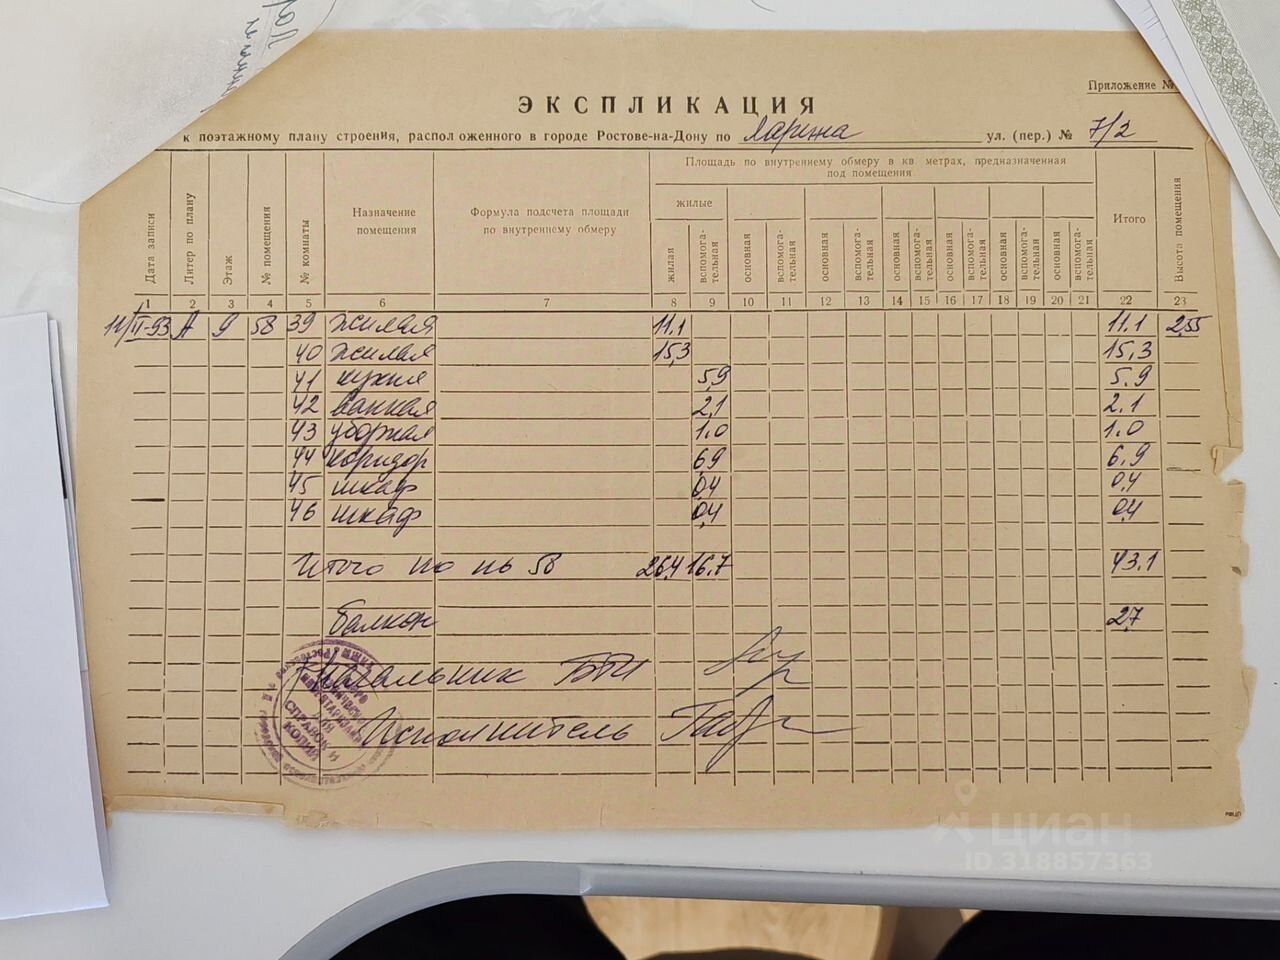 Приложение №
ЭКСПЛИКАЦИЯ
к поэтажному плану строения, расположенного в городе Ростове-на-Дону по Ларина ул. (пер.) № 7/2
Площадь по внутреннему обмеру в кв метрах, предназначенная
под помещения
жилые
Дата записи Литер по плану Этаж № помещения № комнаты Назначение помещения Формула подсчета площади по внутреннему обмеру жилая вспомога-тельная основная вспомога-тельная основная вспомога-тельная основная вспомога-тельная основная вспомога-тельная основная вспомога-тельная основная вспомога-тельная Итого Высота помещения
1 2 3 4 5 6 7 8 9 10 11 12 13 14 15 16 17 18 19 20 21 22 23
11/II-93 А 9 58 39 жилая 11.1 11.1 2,55
40 жилая 15,3 15,3
41 кухня 5,9 5.9
42 ванная 2,1 2.1
43 уборная 1.0 1.0
44 коридор 6,9 6,9
45 шкаф 0,4 0,4
46 шкаф 0,4 0,4
Итого по пь 58 26,4 16,7 43.1
балкон 2,7
Начальник БТИ
Исполнитель
ДЛЯ
СПРАВОК И
КОПИЙ
циан
ID 318857363